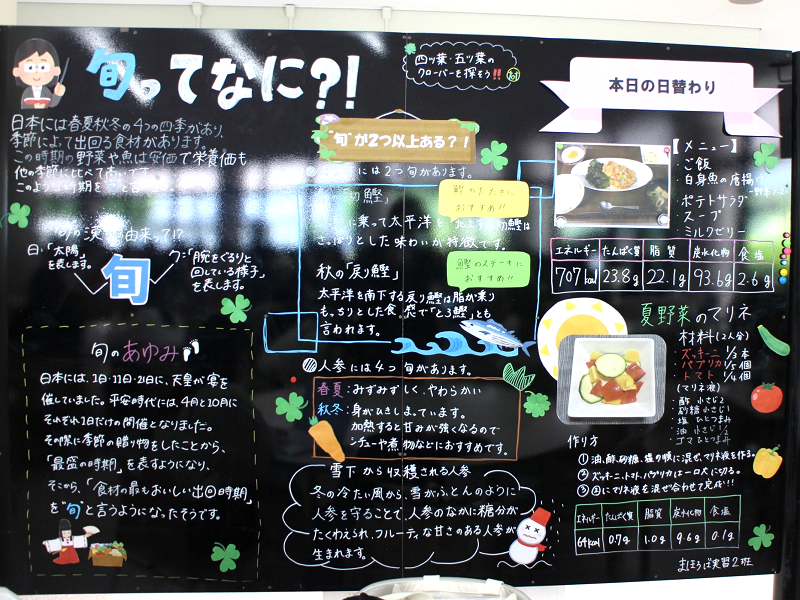 旬ってなに?!
四ッ葉・五ッ葉の
クローバーを探そう!!
本日の日替わり
日本には春夏秋冬の4つの四季があり、
季節によって出回る食材があります。
この時期の野菜や魚は安価で栄養価も
他の季節に比べて高いです。
このような時期を
由来って!?
日:「太陽」
を表します。
旬
勹:「腕をぐるりと
回している様子」
を表します。
旬のあゆみ
日本には、1日・11日・21日に、天皇が宴を
催していました。平安時代には、4月と10月に
それぞれ1日だけの開催となりました。
その際に季節の贈り物をしたことから、
「最盛の時期」を表すようになり、
そこから、「食材の最もおいしい出回時期」
を"旬"と言うようになったそうです。
"旬"が2つ以上ある?!
には2つ旬があります。
初鰹」
鰹のたたきに
おすすめ!!
に乗って太平洋を北上する初鰹は
さっぱりとした味わいが特徴です。
秋の「戻り鰹」
鰹のステーキに
おすすめ!!
太平洋を南下する戻り鰹は脂が乗り
もっちりとした食感で「とろ鰹」とも
言われます。
人参には4つ旬があります。
春夏:みずみずしく、やわらかい
秋冬:身がひきしまっています。
加熱すると甘みが強くなるので
シチューや煮物などにおすすめです。
雪下から収穫される人参
冬の冷たい風から、雪がふとんのように
人参を守ることで、人参のなかに糖分が
たくわえられ、フルーティな甘さのある人参が
生まれます。
【メニュー】
・ご飯
・白身魚の唐揚げ
・ポテトサラダ
・スープ
・ミルクゼリー
エネルギー たんぱく質 脂質 炭水化物 食塩
707kcal 23.8g 22.1g 93.6g 2.6g
夏野菜のマリネ
材料(2人分)
・ズッキーニ 1/3本
・パプリカ 1/5個
・トマト 1/4個
(マリネ液)
酢 小さじ2
砂糖 小さじ1
塩 ひとつまみ
油 小さじ1/2
ゴマ ひとつまみ
作り方
①油、酢、砂糖、塩の順に混ぜ、マリネ液を作る。
②ズッキーニ、トマト、パプリカは一口大に切る。
③②にマリネ液を混ぜ合わせて完成!!!
エネルギー たんぱく質 脂質 炭水化物 食塩
64kcal 0.7g 1.0g 9.6g 0.1g
まほろば実習2班